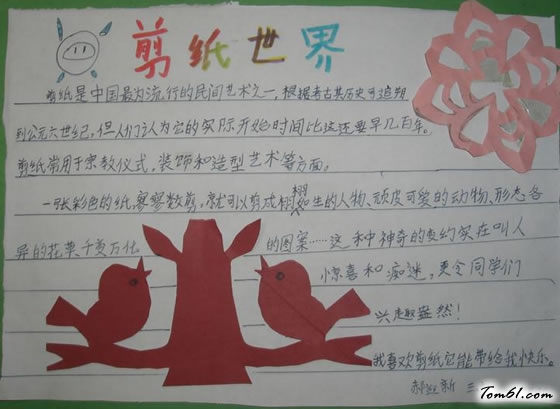 剪纸世界
剪纸是中国最为流行的民间艺术之一，根据考古其历史可追朔
到公元六世纪，但人们认为它的实际开始时间比这还要早几百年。
剪纸常用于宗教仪式，装饰和造型艺术等方面。
一张彩色的纸寥寥数剪，就可以剪成栩栩如生的人物、顽皮可爱的动物、形态各
异的花草、千变万化的图案……这种神奇的变幻实在叫人
惊喜和痴迷，更令同学们
兴趣盎然！
我喜欢剪纸它能带给我快乐。
三
Tom61.com